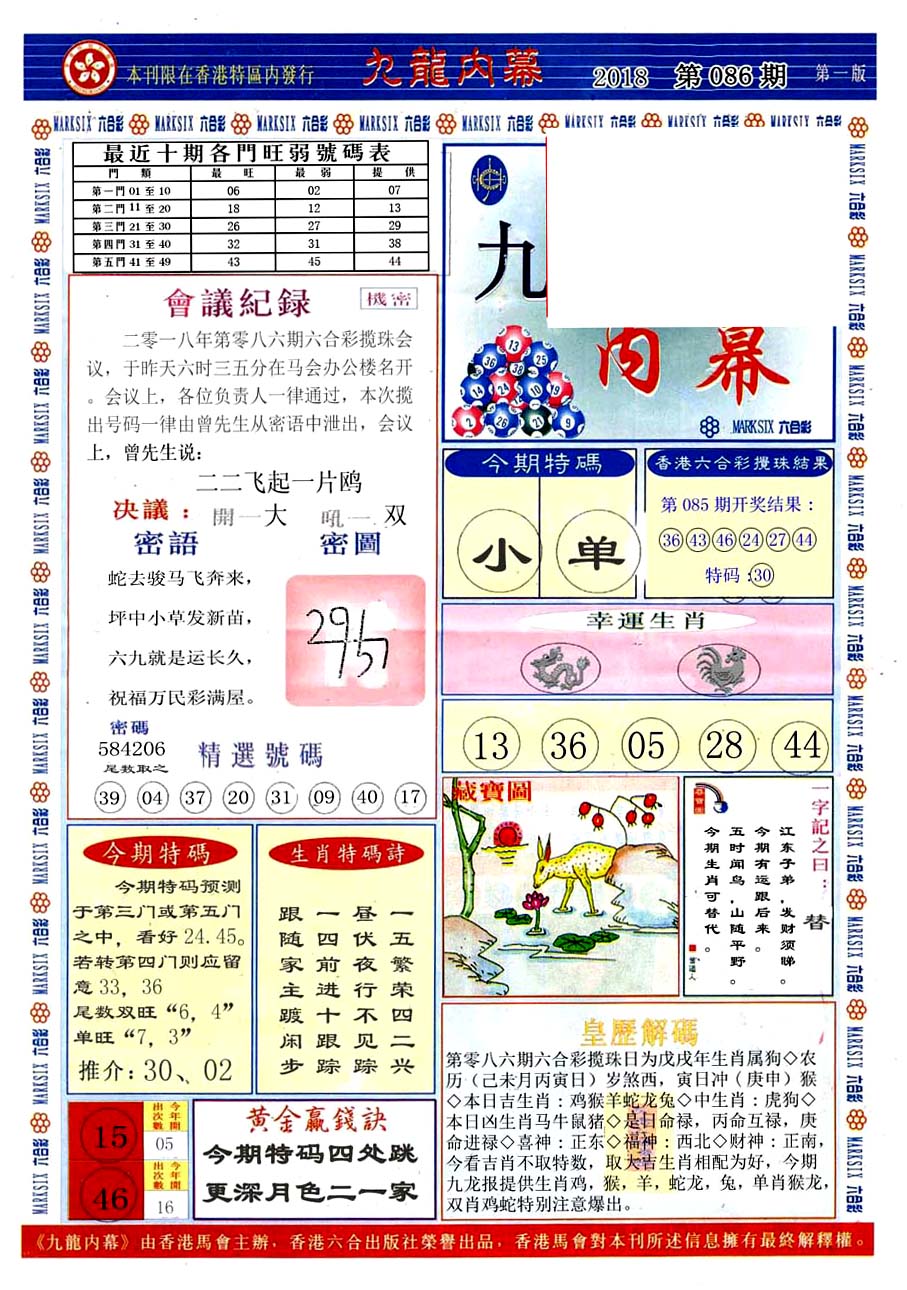 本刊限在香港特區内發行
九龍内幕
2018 第086期
第一版
MARKSIX 六合彩
最近十期各門旺弱號碼表
門類 最旺 最弱 提供
第一門 01 至 10 06 02 07
第二門 11 至 20 18 12 13
第三門 21 至 30 26 27 29
第四門 31 至 40 32 31 38
第五門 41 至 49 43 45 44
會議紀録
機密
二零一八年第零八六期六合彩揽珠会
议，于昨天六时三五分在马会办公楼名开
。会议上，各位负责人一律通过，本次揽
出号码一律由曾先生从密语中泄出，会议
上，曾先生说：
二二飞起一片鸥
决議： 開一大 吼一 双
密語
密圖
蛇去骏马飞奔来，
坪中小草发新苗，
六九就是运长久，
祝福万民彩满屋。
密碼
584206
尾数取之
精選號碼
39 04 37 20 31 09 40 17
九
内幕
13
36 25
14 24 10 19
2 26 21 9
MARKSIX 六合彩
今期特碼
小 单
香港六合彩攪珠結果
第085期开奖结果：
36 43 46 24 27 44
特码：30
幸運生肖
13 36 05 28 44
藏寶圖
一字記之曰：替
江东子弟，发财须睇。
今期有运跟后来。
五时闻鸟，山随平野。
今期生肖可替代。
今期特碼
今期特码预测
于第三门或第五门
之中，看好24.45。
若转第四门则应留
意33，36
尾数双旺“6，4”
单旺“7，3”
推介：30、02
生肖特碼詩
一五繁荣四二兴
昼伏夜行不见踪
一四前进十跟踪
跟随家主踱闲步
15
今年開出次數
05
46
今年開出次數
16
黄金赢錢訣
今期特码四处跳
更深月色二一家
皇歷解碼
第零八六期六合彩揽珠日为戊戌年生肖属狗◇农
历（己未月丙寅日）岁煞西，寅日冲（庚申）猴
◇本日吉生肖：鸡猴羊蛇龙兔◇中生肖：虎狗◇
本日凶生肖马牛鼠猪◇是日命禄，丙命互禄，庚
命进禄◇喜神：正东◇福神：西北◇财神：正南，
今看吉肖不取特数，取大吉生肖相配为好，今期
九龙报提供生肖鸡，猴，羊，蛇龙，兔，单肖猴龙，
双肖鸡蛇特别注意爆出。
《九龍内幕》由香港馬會主辦，香港六合出版社榮譽出品，香港馬會對本刊所述信息擁有最終解釋權。